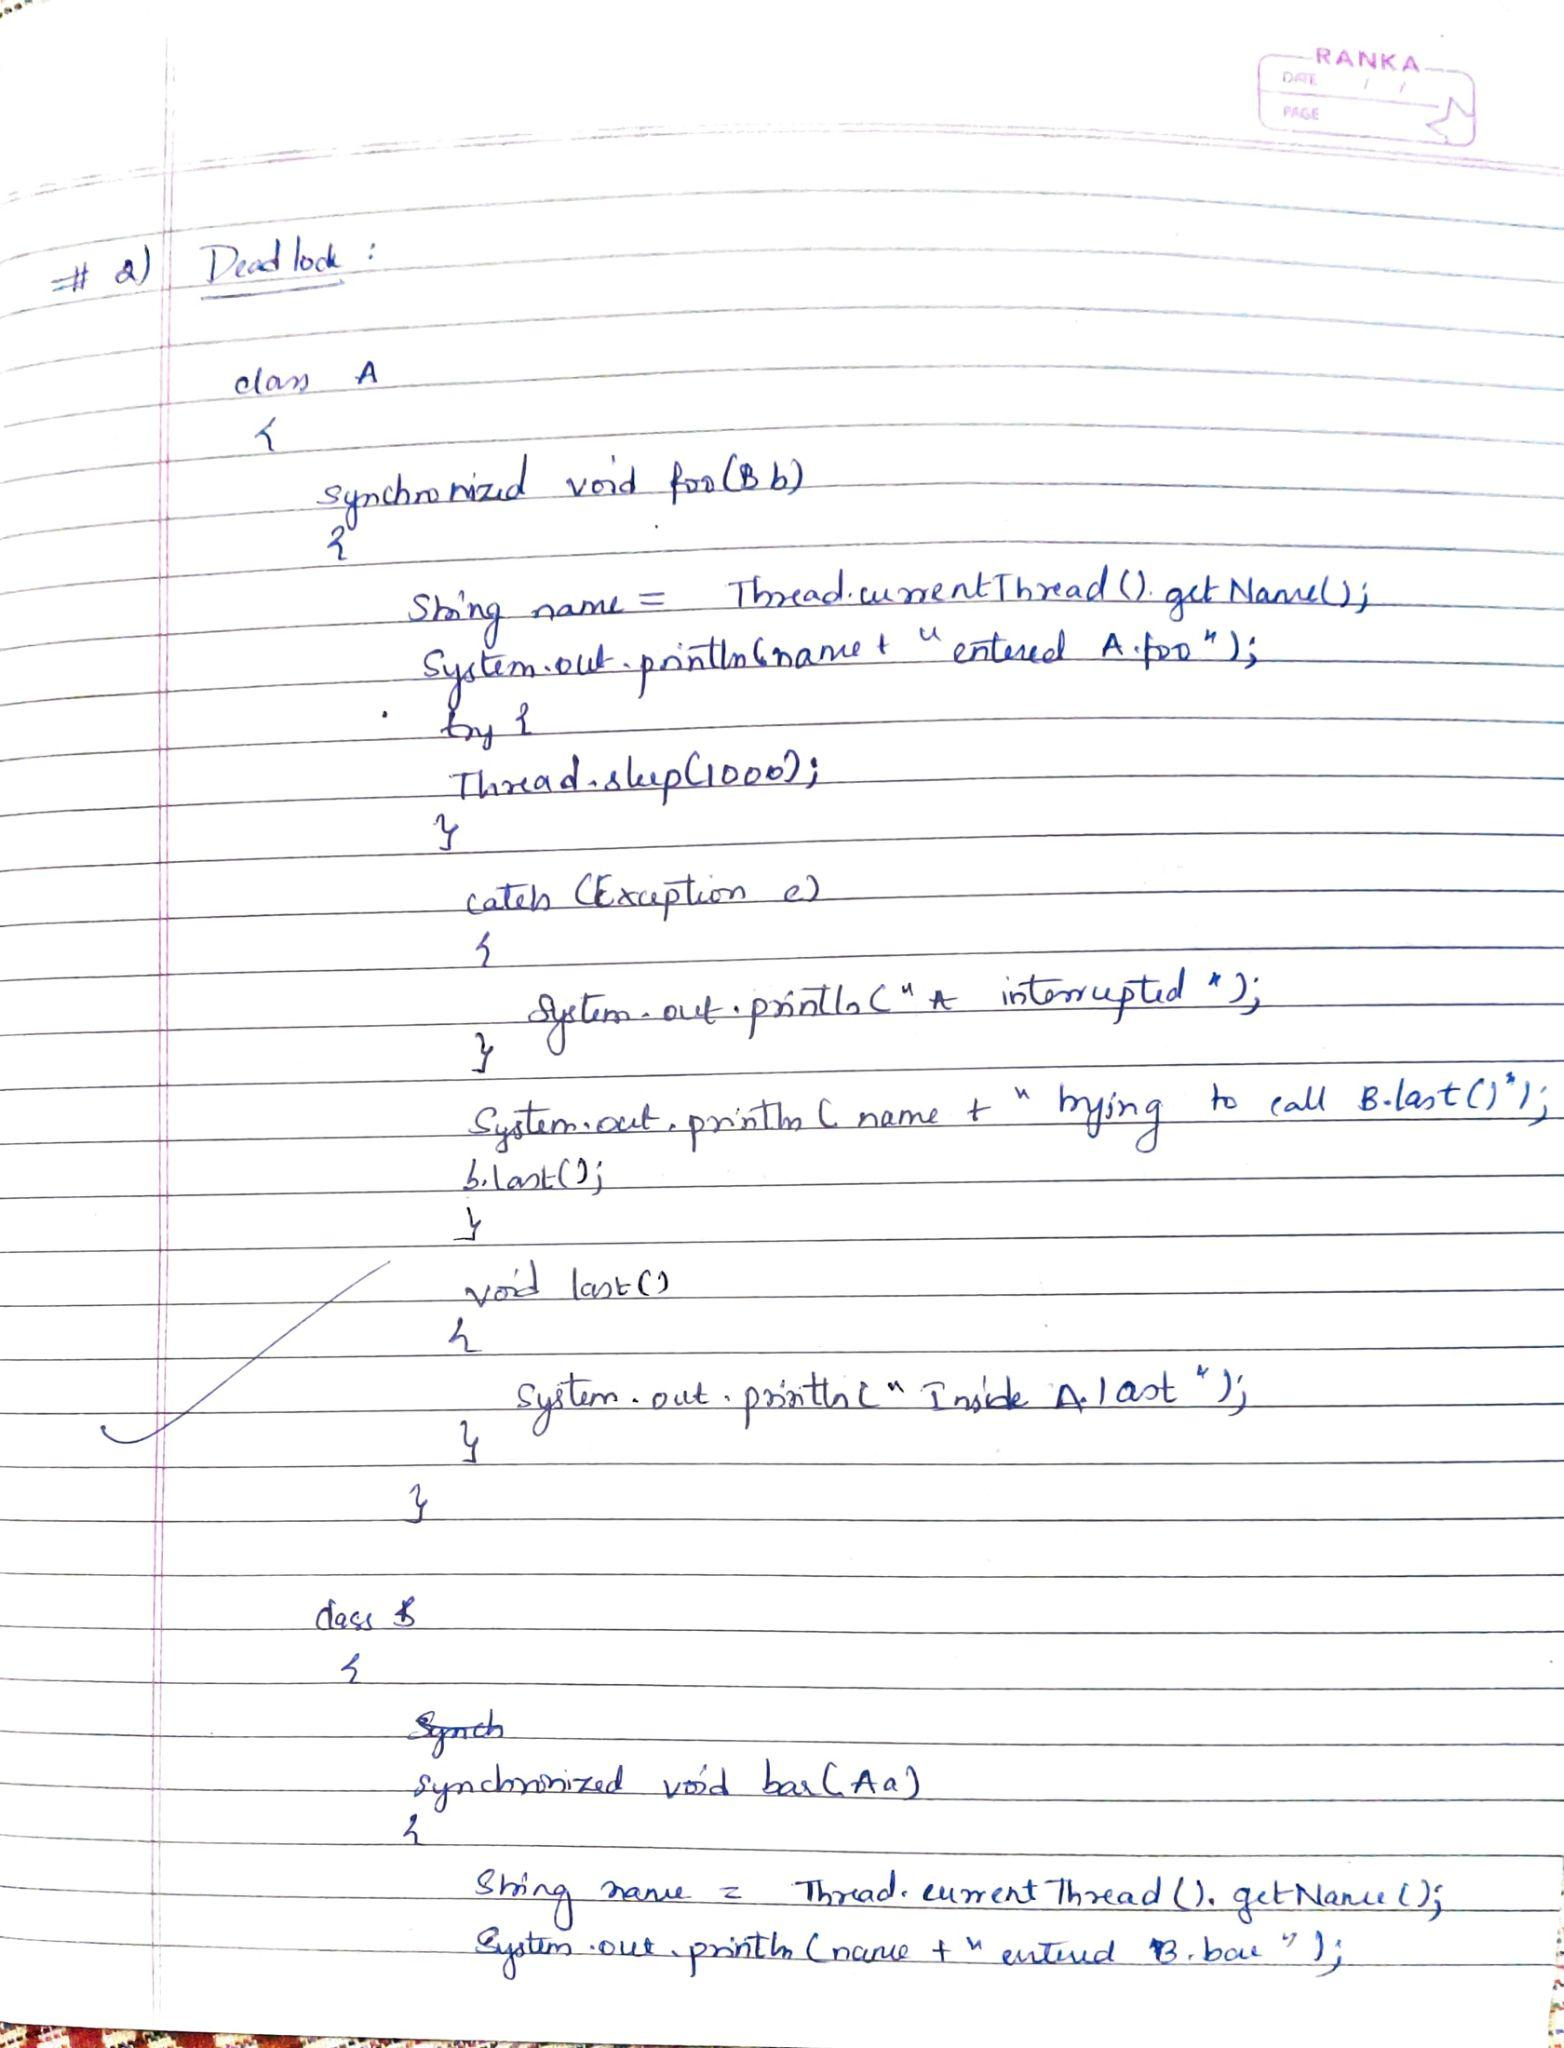 RANKA
DATE / /
PAGE
# 2) Deadlock :
class A
{
synchronized void foo(B b)
{
String name = Thread.currentThread().getName();
System.out.println(name + " entered A.foo");
try {
Thread.sleep(1000);
}
catch (Exception e)
{
System.out.println(" A interrupted ");
}
System.out.println( name + " trying to call B.last()");
b.last();
}
void last()
{
System.out.println(" Inside A.last ");
}
}
class B
{
Synch
synchronized void bar(A a)
{
String name = Thread.currentThread().getName();
System.out.println(name + " entered B.bar ");